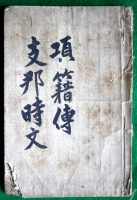 項籍傳
支那時文